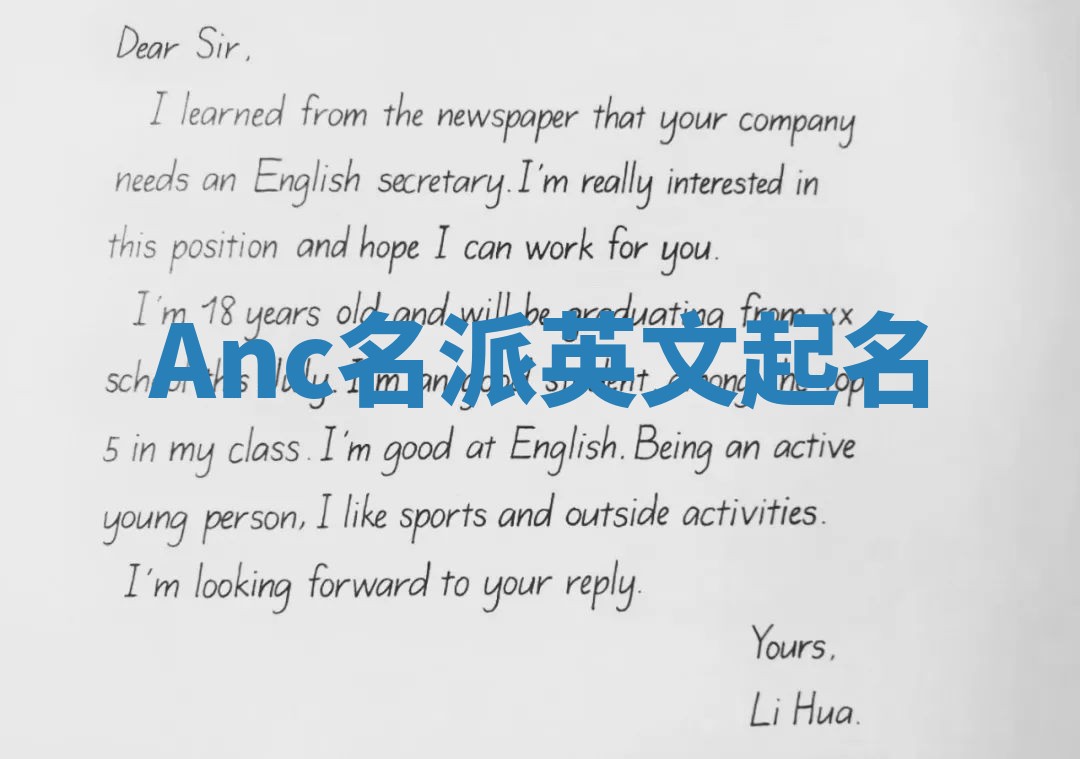 Dear Sir,
I learned from the newspaper that your company
needs an English secretary. I'm really interested in
this position and hope I can work for you.
I'm 18 years old and will be graduating from xx
Anc名派英文起名
school this July. I'm an good student, among the top
5 in my class. I'm good at English. Being an active
young person, I like sports and outside activities.
I'm looking forward to your reply.
Yours,
Li Hua.